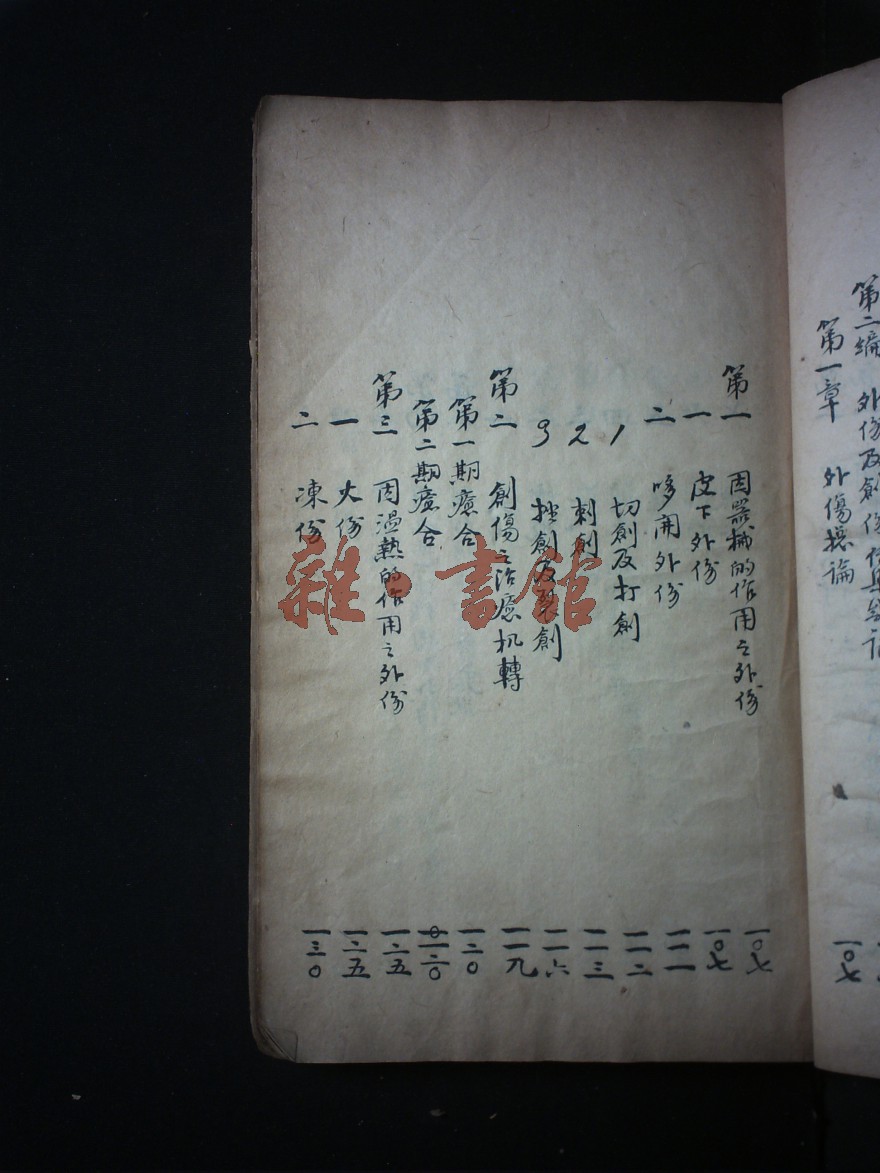 第二編 外伤及創伤
第一章 外傷揔論 一〇七
第一 因器械的作用之外伤 一〇七
一 皮下外伤 一〇七
二 哆開外伤 一一一
1 切創及打創 一一二
2 刺創 一一三
3 挫創及裂創 一一六
第二 創傷之治癒机轉 一一九
第一期癒合 一二〇
第二期癒合
第三 因温熱的作用之外伤 一二五
一 火伤 一二五
二 凍伤 一三〇
雜·書館